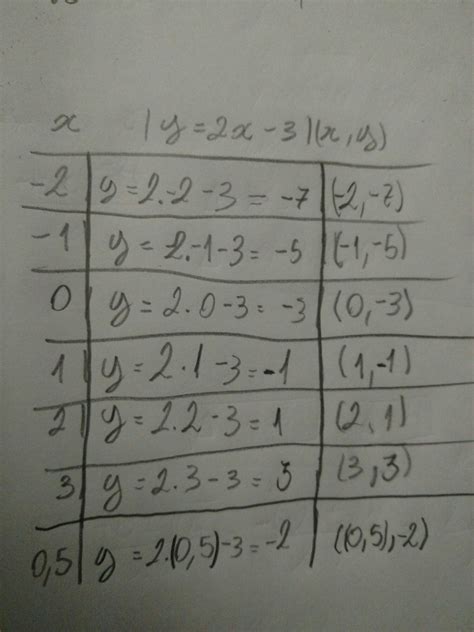 x | y = 2x - 3 | (x, y)
-2 | y = 2.-2 - 3 = -7 | (-2, -7)
-1 | y = 2.-1 - 3 = -5 | (-1, -5)
0 | y = 2.0 - 3 = -3 | (0, -3)
1 | y = 2.1 - 3 = -1 | (1, -1)
2 | y = 2.2 - 3 = 1 | (2, 1)
3 | y = 2.3 - 3 = 3 | (3, 3)
0,5 | y = 2.(0,5) - 3 = -2 | ((0,5), -2)